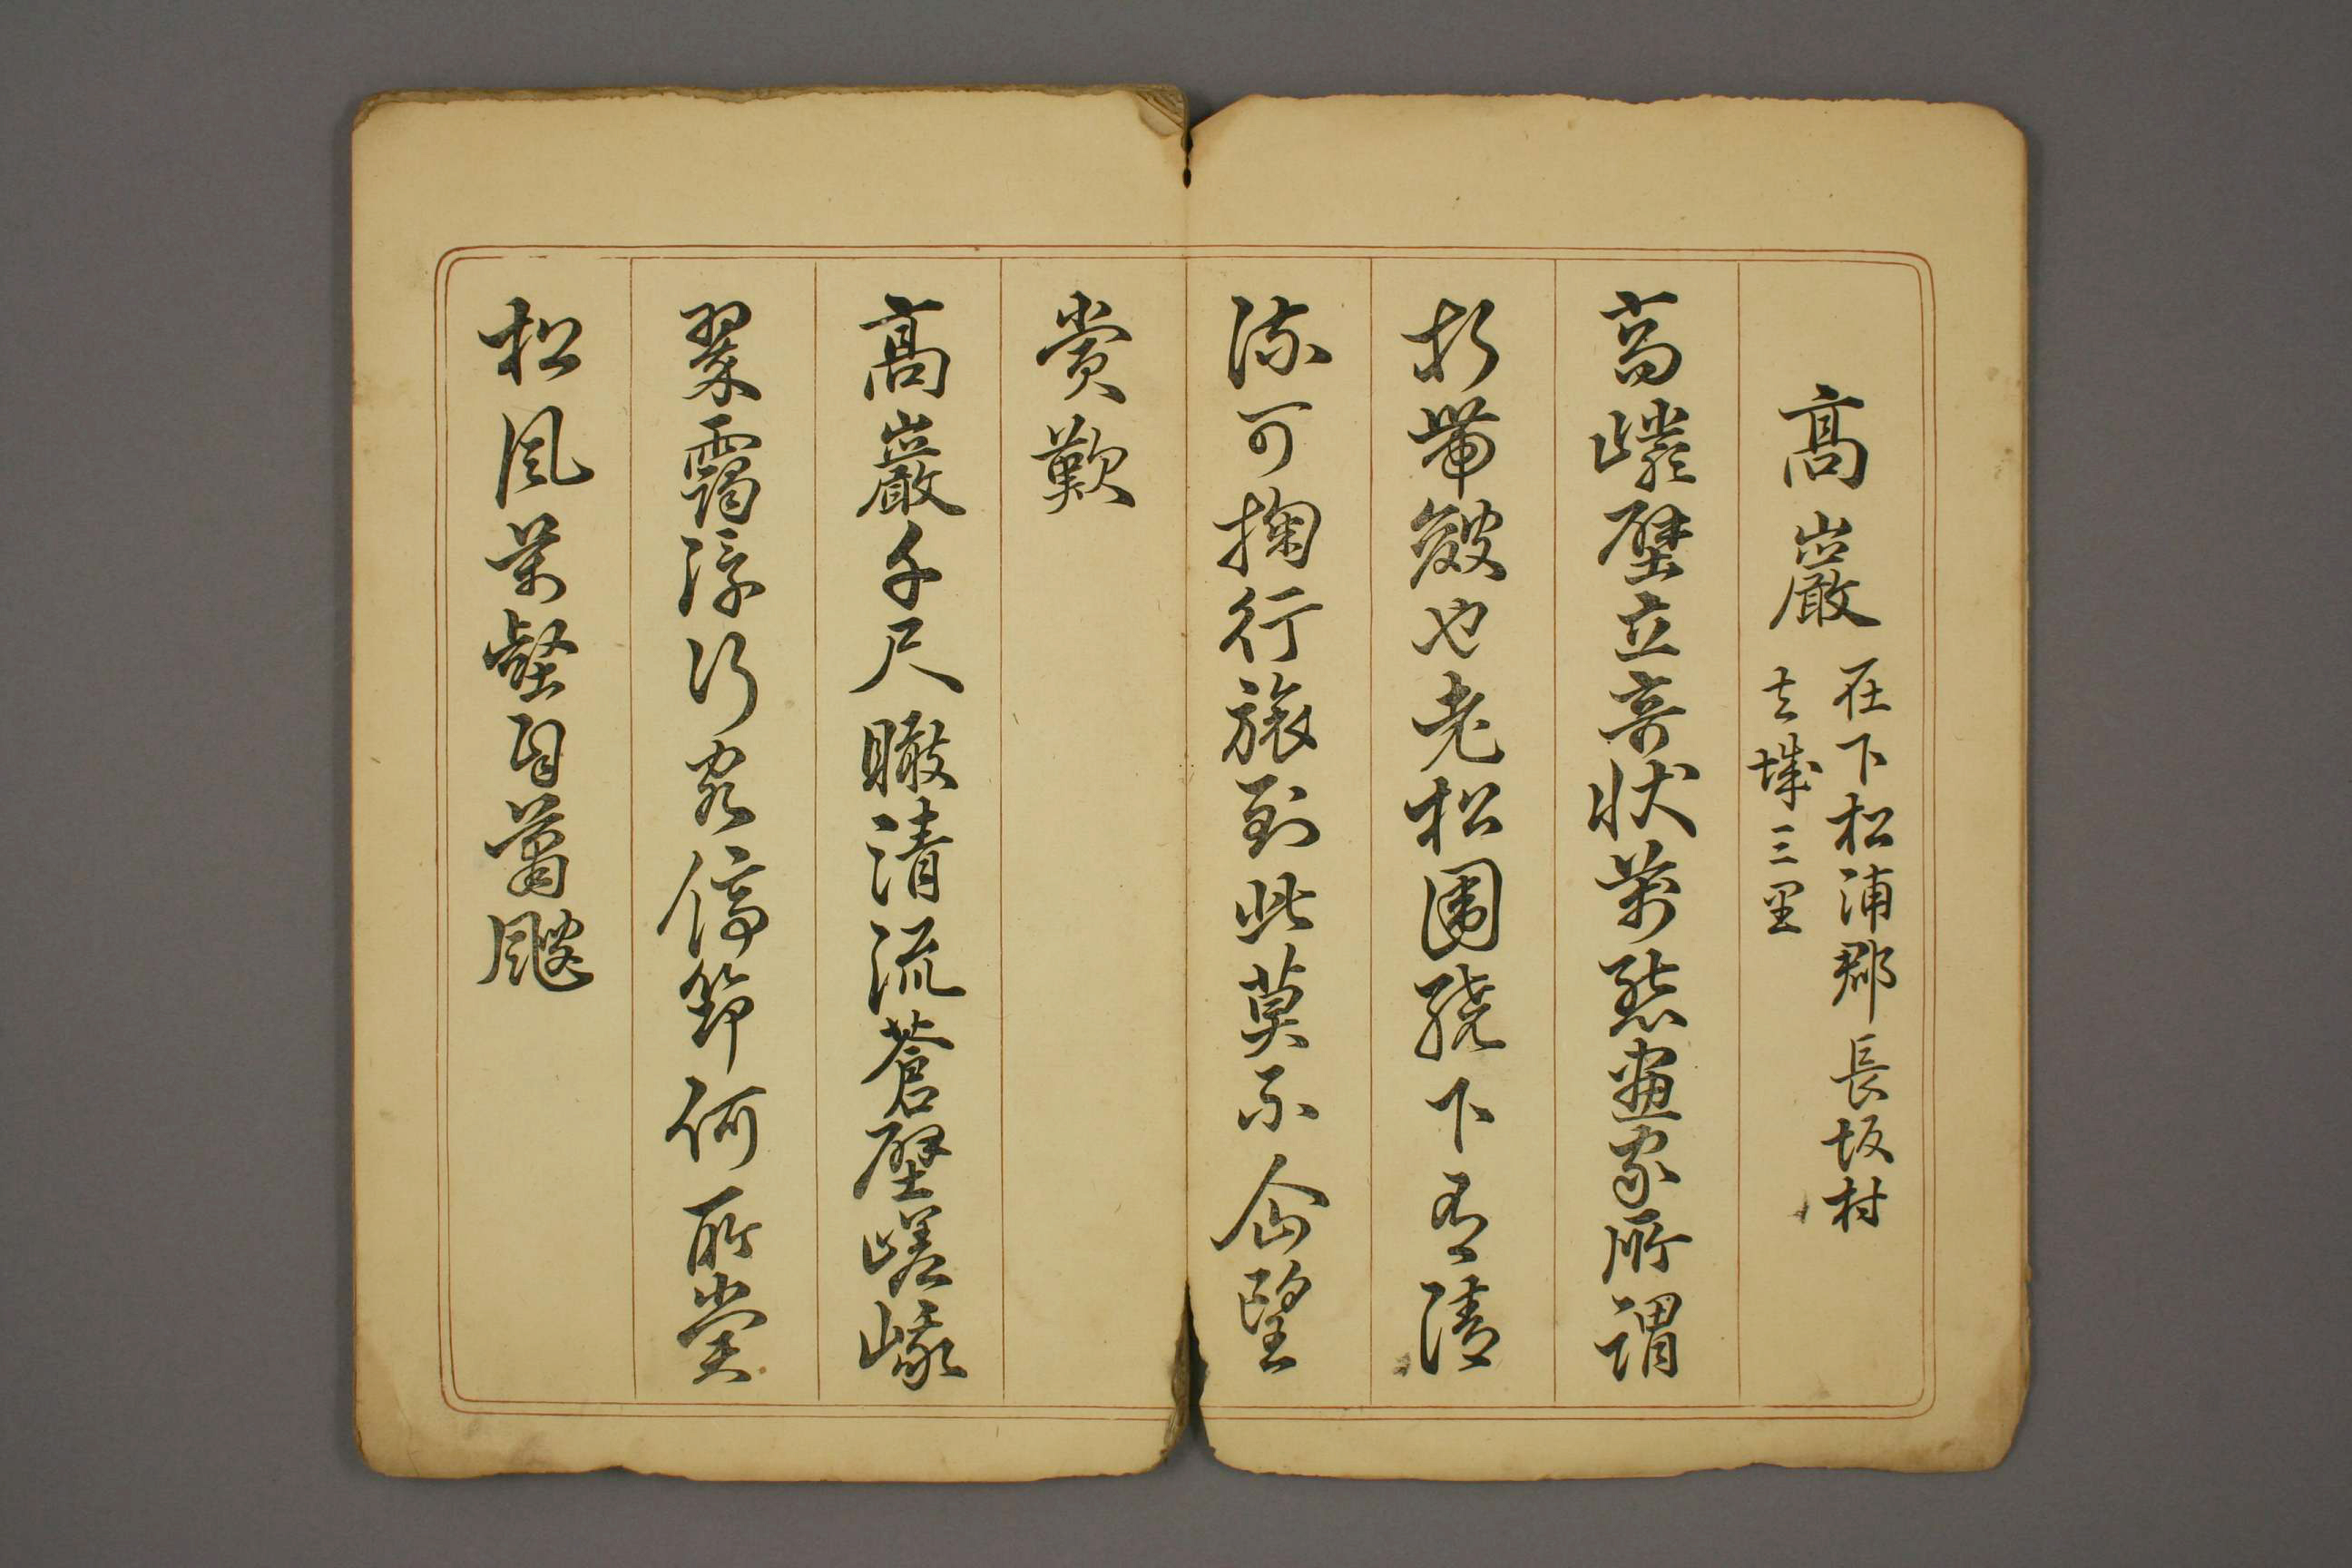 高巖 在下松浦郡長坂村
去城三里
高嶷壁立奇状萬態畫家所謂
折帶皴也老松圍繞下有清
流可掬行旅到此莫不企望
賞歎
高巖千尺瞰清流蒼壁嵯峨
翠靄浮行客停笻何所賞
松風萬壑自蕭颼